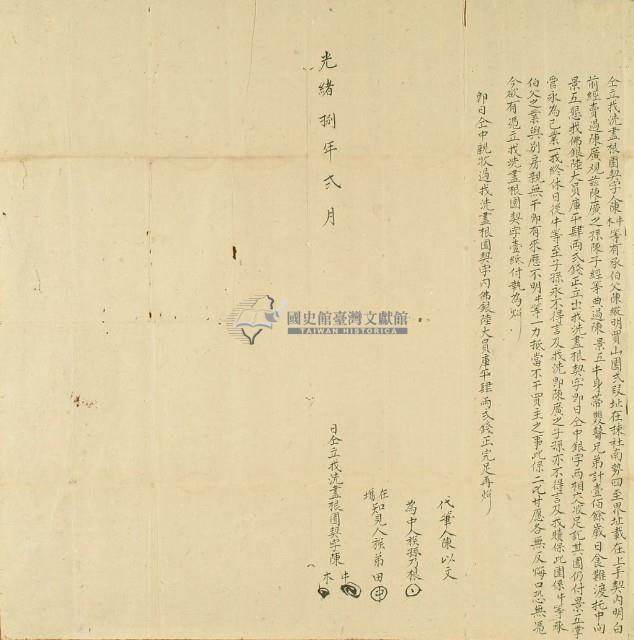 仝立找洗盡根園契字人陳牛木等有承伯父陳縱明買山園弍段址在揀社南勢四至界址載在上手契內明白
前經賣過陳廣观兹陳廣之孫陳子經等曲過陳景五牛身帶雙瞽兄弟計壹佰餘歲日食難渡托中向
景五懇找佛銀陸大員庫平肆兩弍錢正立出找洗盡根契字即日仝中銀字兩相交收足訖其園仍付景五掌
管永為己業一找終休日後牛等至子孫永不得言及找洗即陳廣之子孫亦不得言及找贖保此園係牛等承
伯父之業與別房親無干即有來歷不明牛等一力抵當不干買主之事此係二比甘愿各無反悔口恐無憑
今欲有憑立找洗盡根園契字壹紙付執為炤
即日仝中親收過找洗盡根園契字內佛銀陸大員庫平肆兩弍錢正完足再炤
代筆人陳以文
為中人族孫乃
在塲知見人族弟田
光緒捌年弍月 日仝立找洗盡根園契字陳牛木
國史館臺灣文獻館
TAIWAN HISTORICA